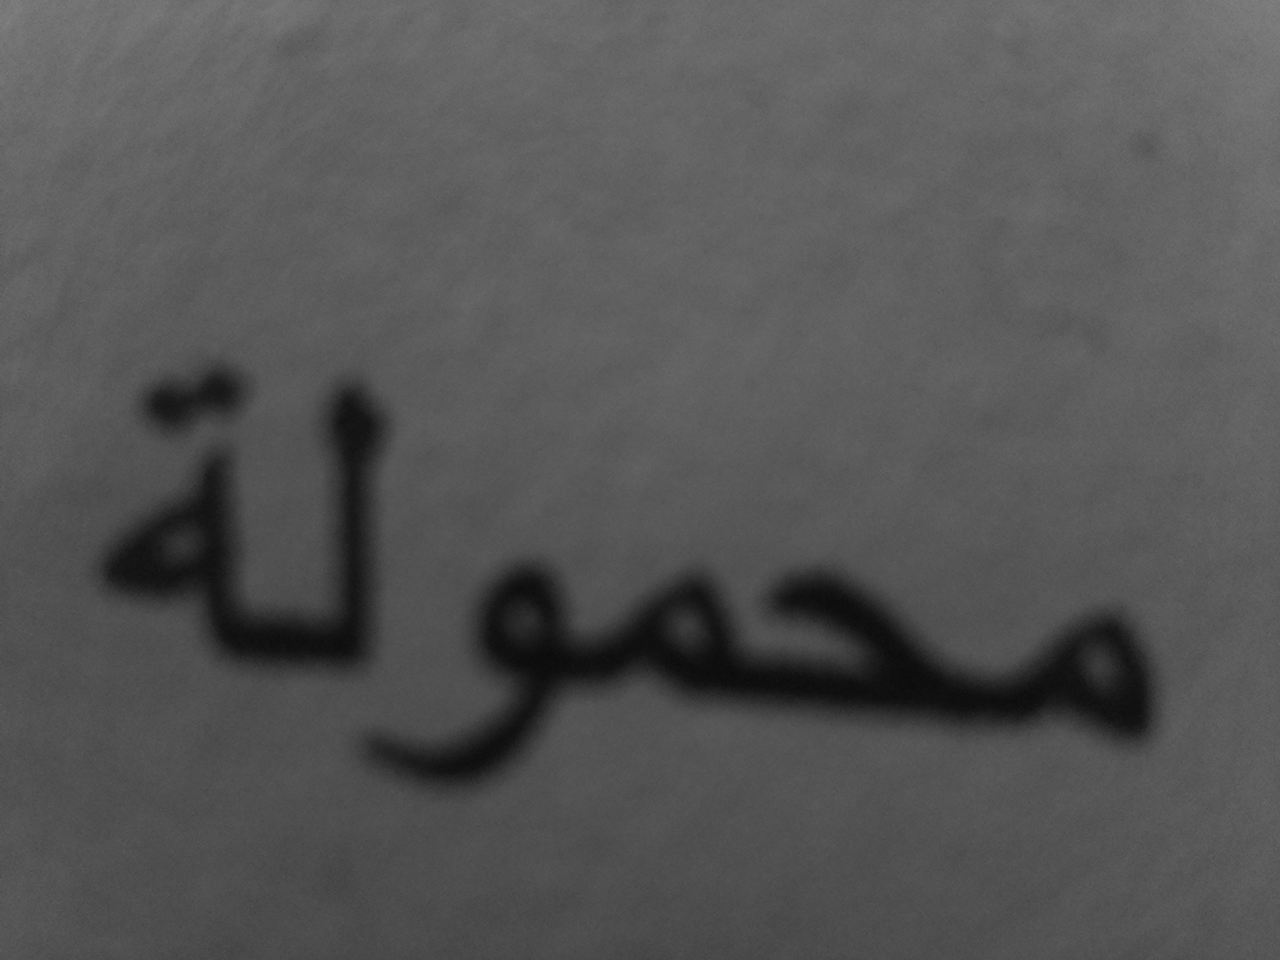 محمولة